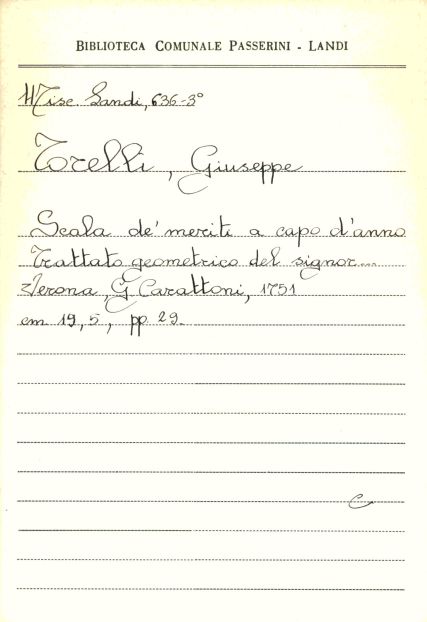 BIBLIOTECA COMUNALE PASSERINI - LANDI
Misc. Landi, 636-3°
Torelli, Giuseppe
Scala de' meriti a capo d'anno
Trattato geometrico del signor...
Verona, G. Carattoni, 1751
cm 19,5, pp. 29.
C